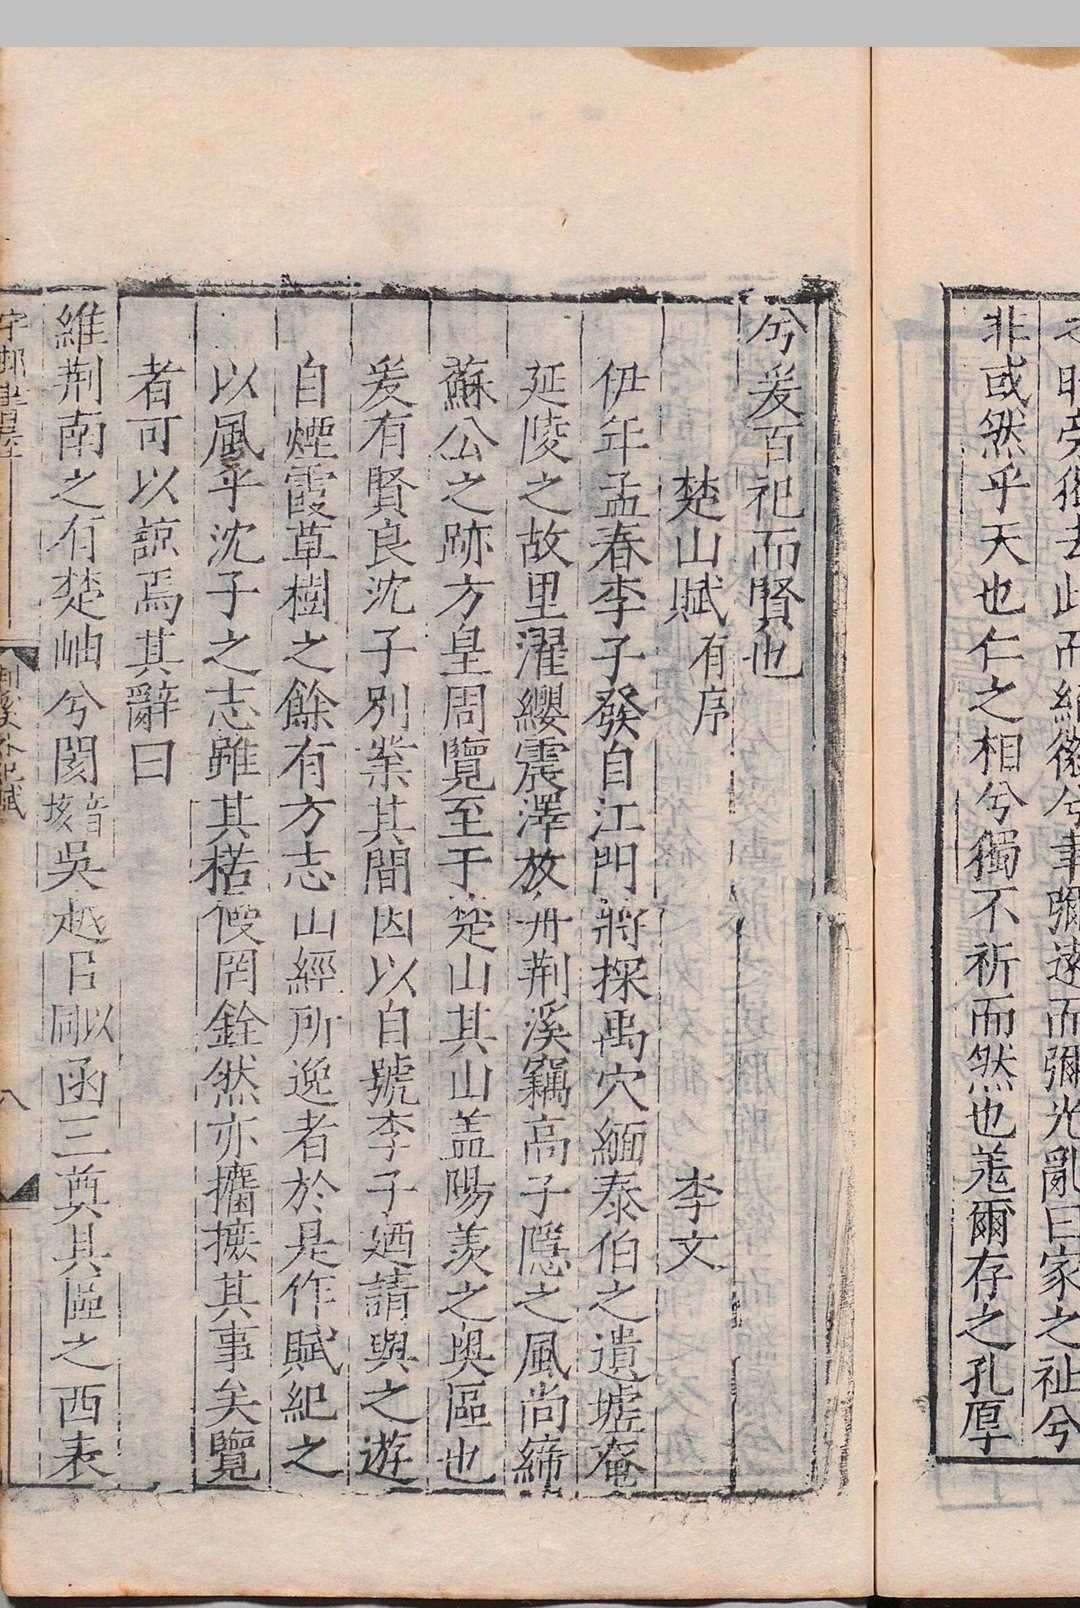 非或然乎天也仁之相兮獨不祈而然也羗爾存之孔厚
兮爰百祀而賢也
楚山賦有序　李文
伊年孟春李子發自江門將探禹穴緬泰伯之遺墟奄
延陵之故里濯纓震澤放舟荆溪竊高子隱之風尚締
蘇公之跡方皇周覽至于楚山其山盖陽羨之奥區也
爰有賢良沈子別業其間因以自號李子廼請與之遊
自煙霞草樹之餘有方志山經所逸者於是作賦紀之
以風乎沈子之志雖其楛僈罔銓然亦擂摭其事矣覽
者可以諒焉其辭曰
維荆南之有楚岫兮閡音垓吳越㠯以剛函三奠具區之西表